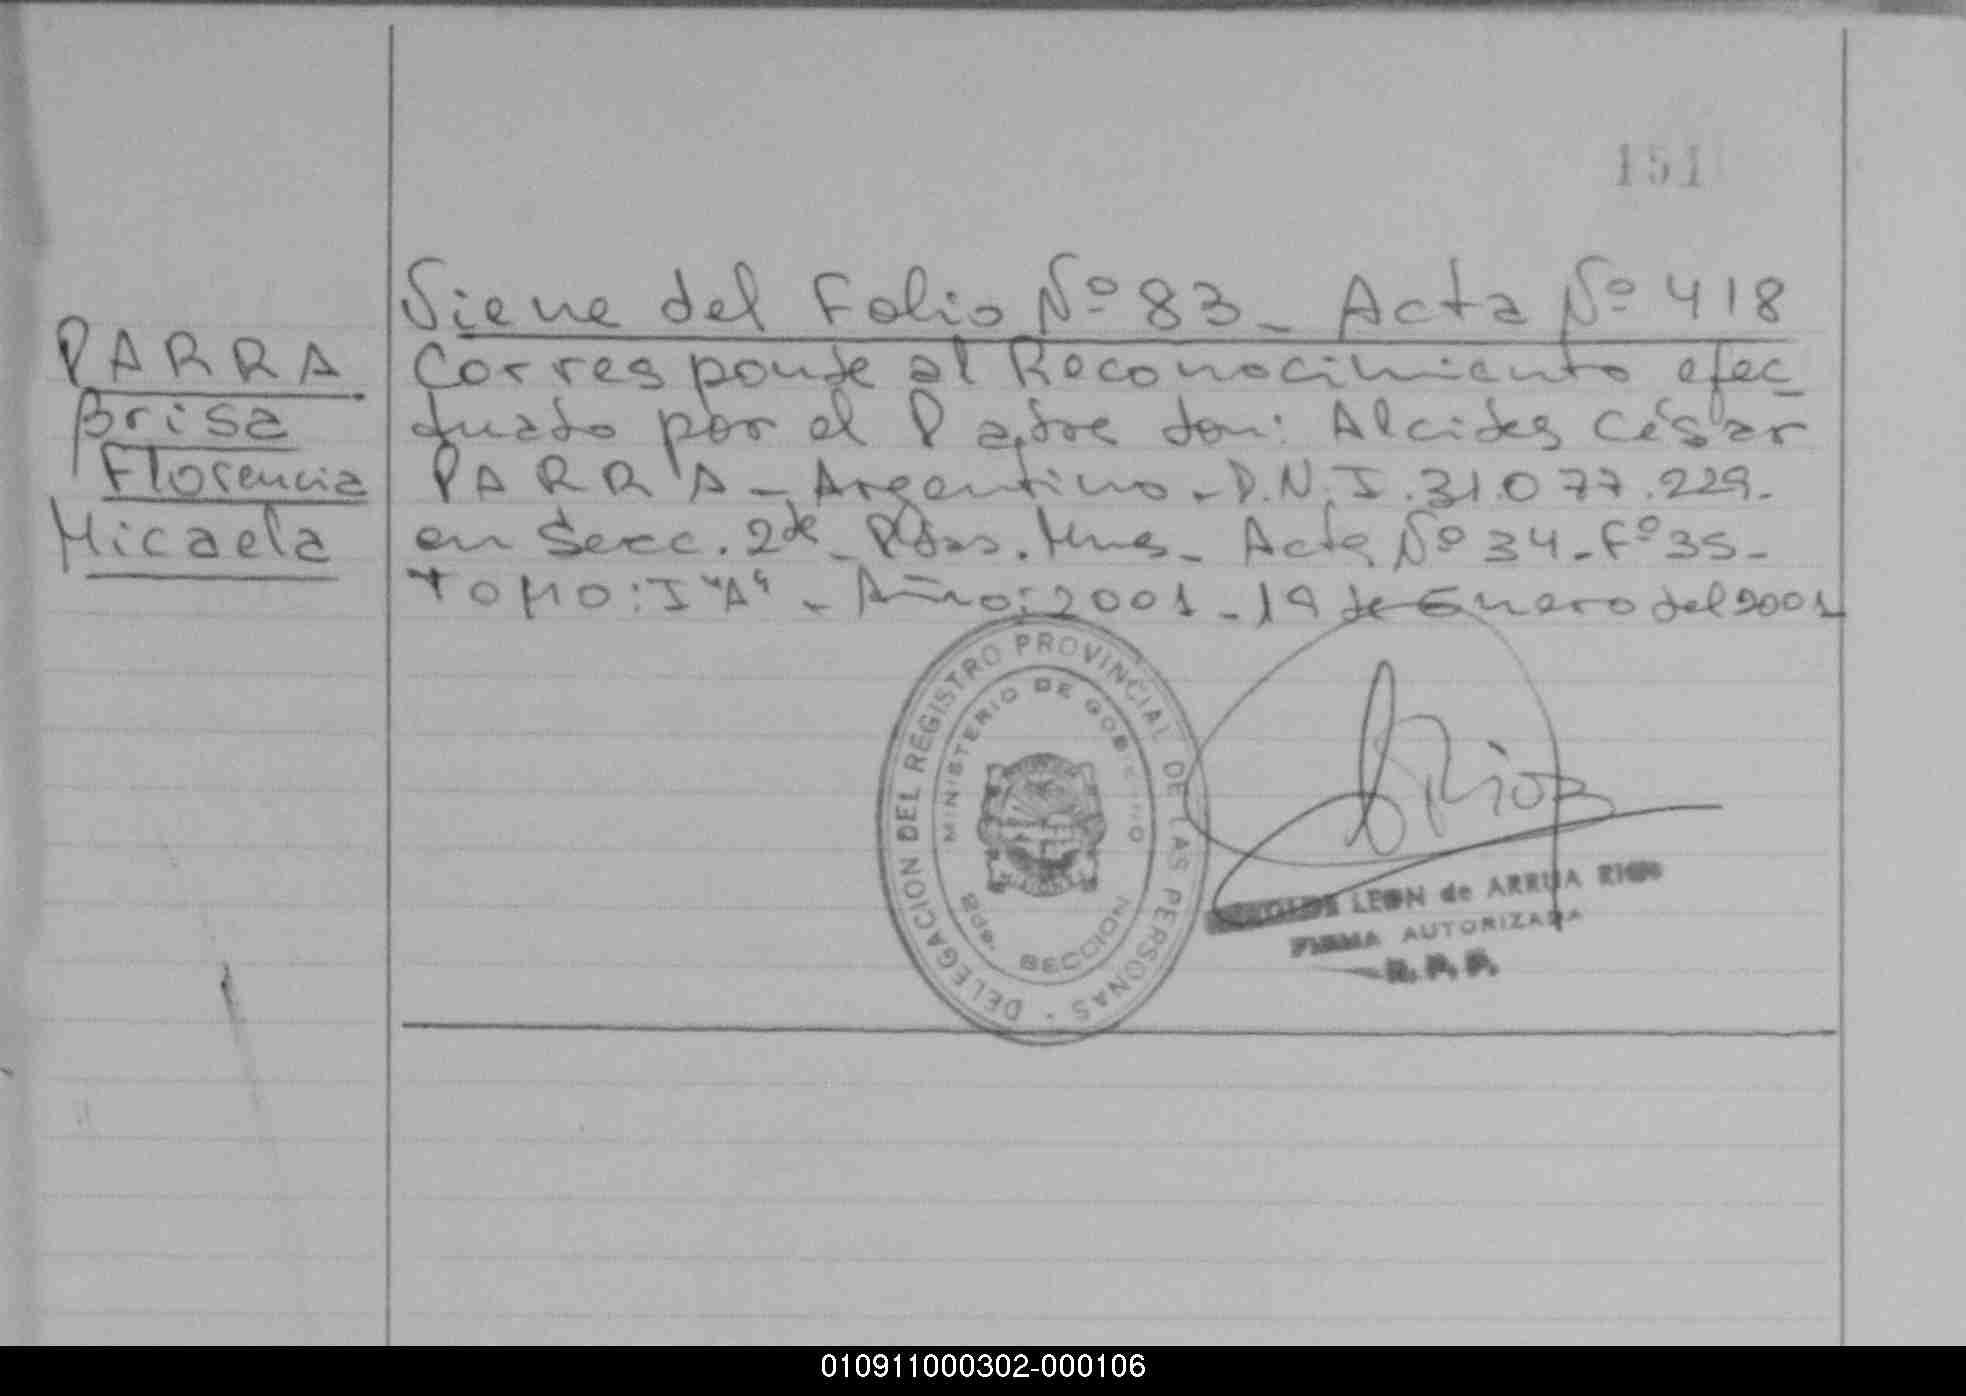 151
Siene del Folio Nº 83 - Acta Nº 418
PARRA
Brisa
Florencia
Micaela
Corresponde al Reconocimiento efec
tuado por el Padre don: Alcides César
PARRA - Argentino - D.N.I. 31.077.229.
en Secc. 2da - Pdas. Mnes - Acta Nº 34 - Fº 35 -
TOMO: I "A" - Año: 2001 - 19 de Enero del 2001
DELEGACION DEL REGISTRO PROVINCIAL DE LAS PERSONAS
MINISTERIO DE GOBIERNO
SECCION
Rios
LEON de ARRUA RIOS
FIRMA AUTORIZADA
R. P. P.
010911000302-000106